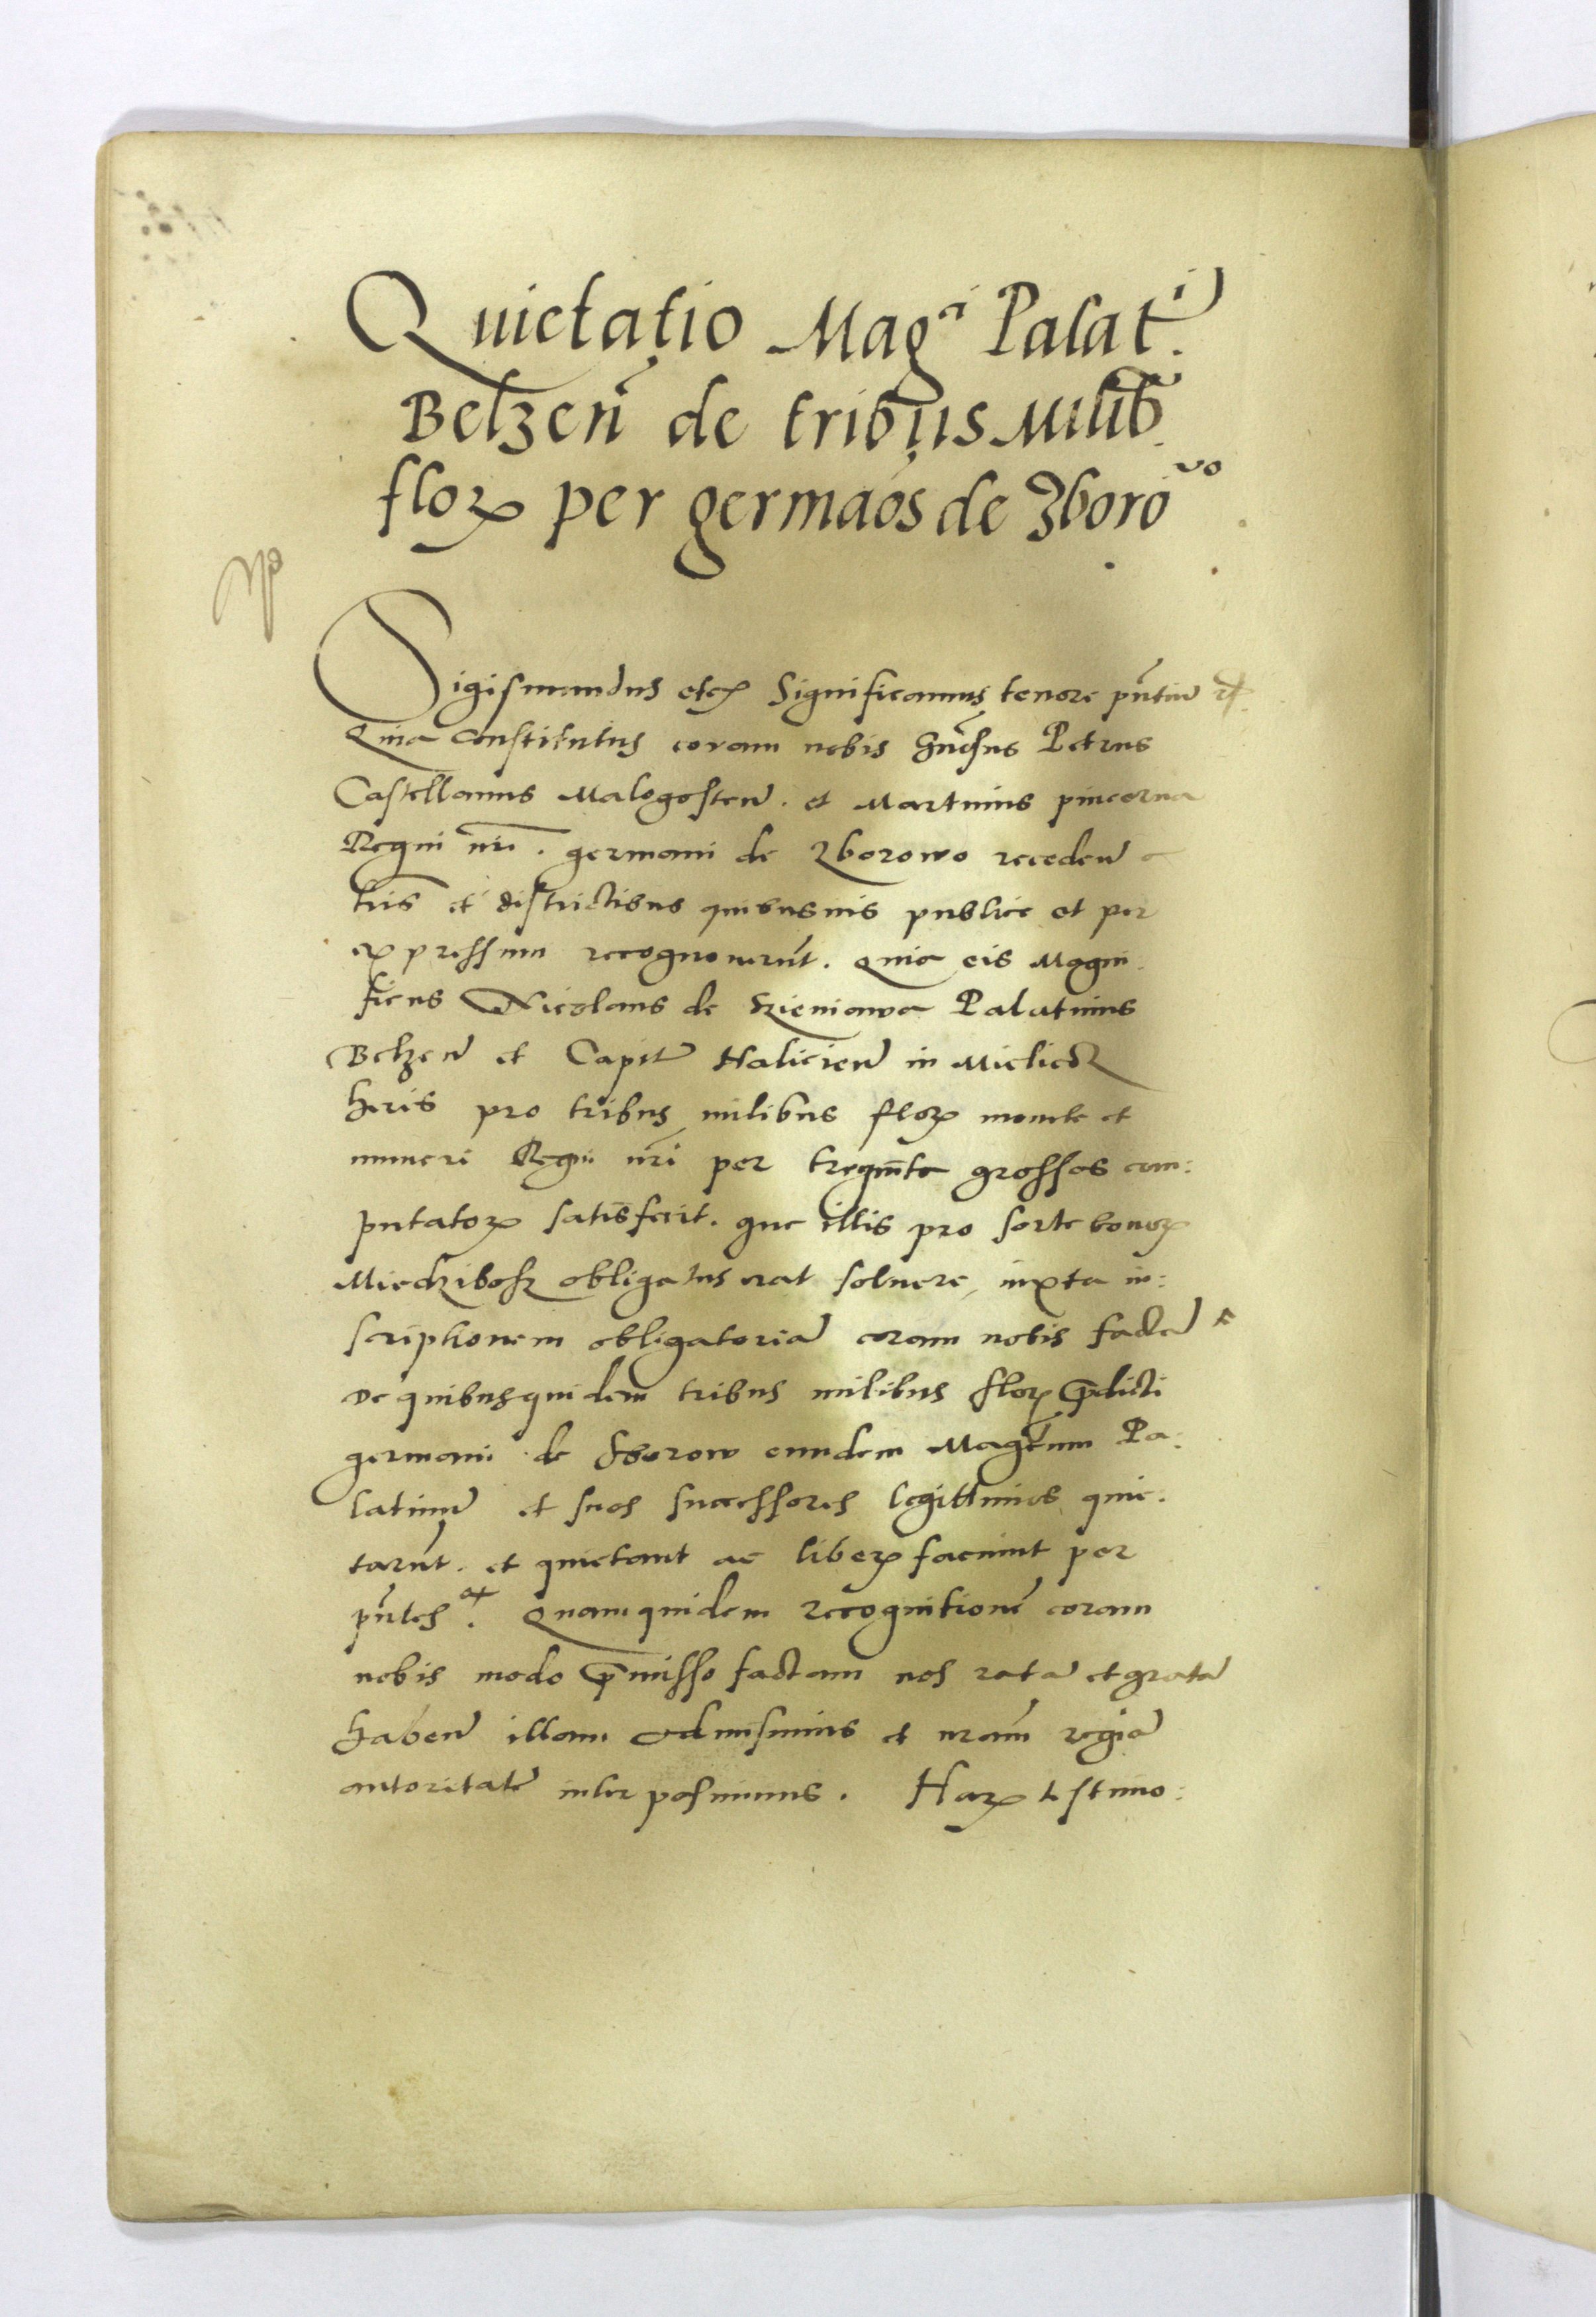 Quietatio Mag.ci Palat.i
Belzen̄ de tribus Milib.
floꝝ per germāos de Zborōvo
Sigismundus etcꝫ Significamus tenore pn̄tiū
Quia Constitutus coram nobis Petrus
Castellanus Malogosten̄. et Martinus pincerna
Regni nr̄i. germani de Zborowo receden̄ a
tris et districtibus quibusuis publice et per
expressum recognouerūt. Quia eis Magni-
ficus Nicolaus de Szieniawa Palatinus
Belzen̄ et Capit Halicien̄ in
heris pro tribus milibus floꝝ monete et
numeri Regni nr̄i per trigīnta grossos com:
putatoꝝ satisfecit. que illis pro sorte bonoꝝ
Miedziboſz obligatus erat soluere, iuxta in:
scriptionem obligatoriā coram nobis factā
De quibusquidem tribus milibus floꝝ p̄dicti
germani de Sborow eundem Magcūm Pa:
latinū et suos successores legittimos quie:
tarūt. et quietant ac liberꝫ faciunt per
pn̄tes. Quamquidem recognitionē coram
nobis modo p̄misso factam nos ratā et gratā
haben̄ illam admisimus et nr̄am regiā
autoritatē interposuimus. Haꝝ testimo: